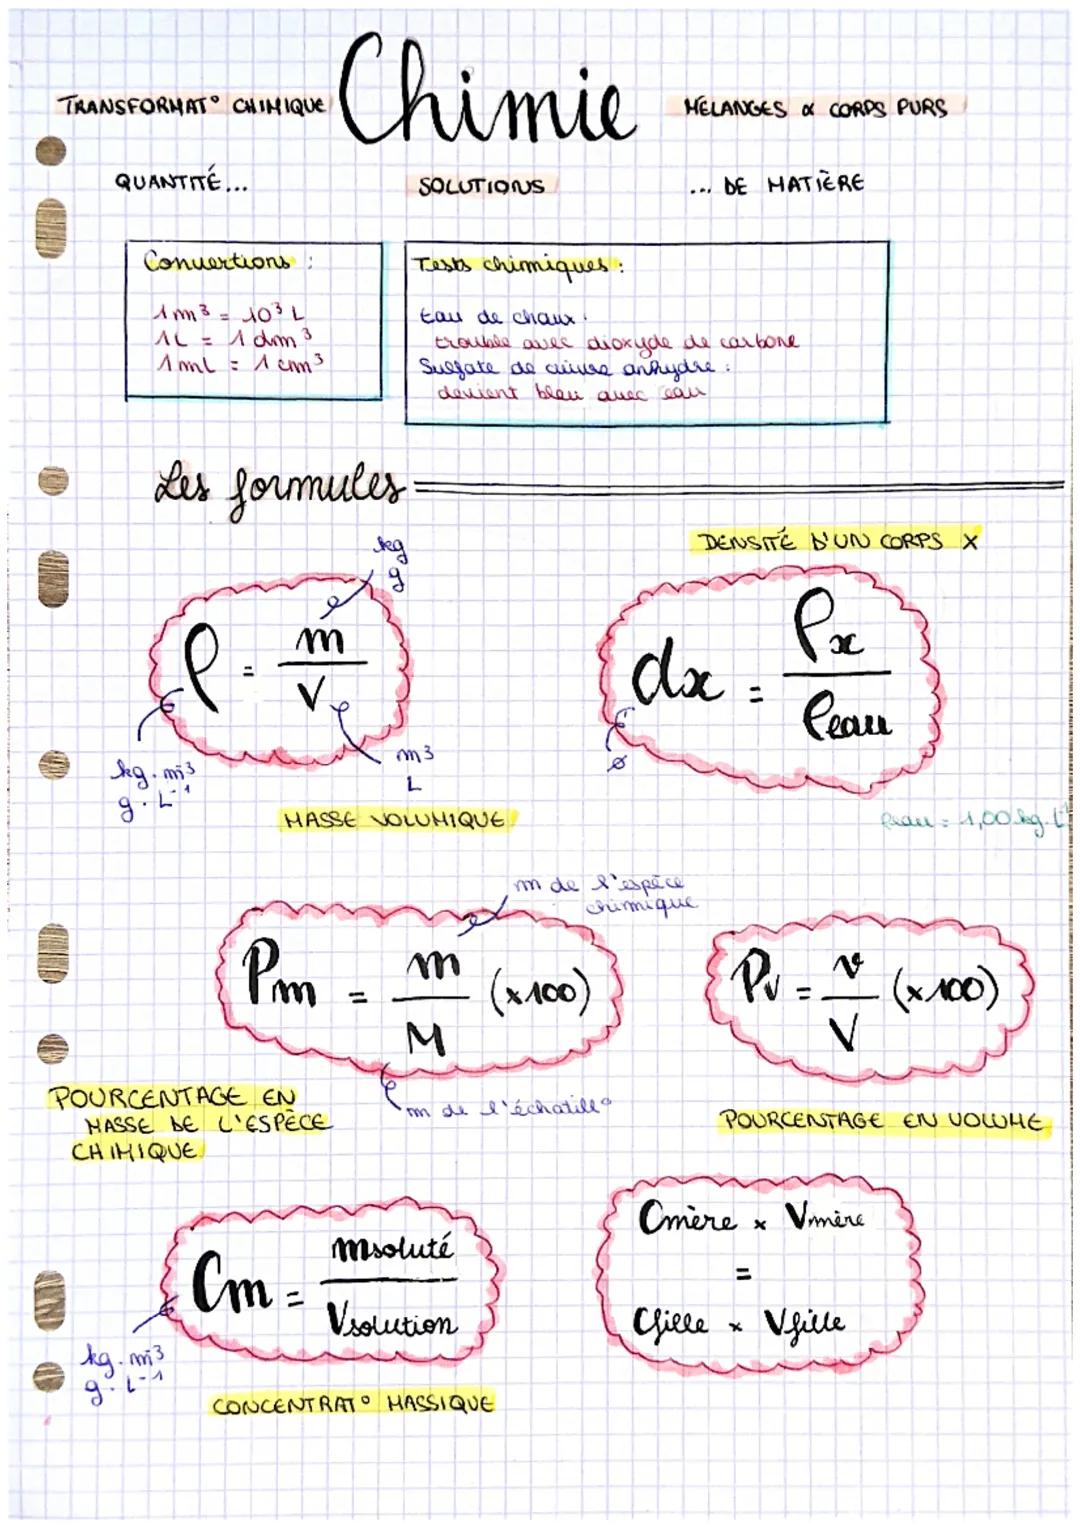 Chimie
TRANSFORMAT° CHIMIQUE
MÉLANGES & CORPS PURS
QUANTITÉ...
SOLUTIONS
... DE MATIÈRE
Convertions :
1 m³ = 10³ L
1L = 1 dm³
1 mL = 1 cm³
Tests chimiques :
Eau de chaux :
trouble avec dioxyde de carbone
Sulfate de cuivre anhydre :
devient bleu avec eau
Les formules
kg
g
ρ = m / V
kg.m⁻³
g.L⁻¹
m³
L
MASSE VOLUMIQUE
DENSITÉ D'UN CORPS X
dx = ρx / ρeau
ø
ρeau = 1,00 kg.L⁻¹
m de l'espèce
chimique
Pm = m / M (×100)
m de l'échatill°
POURCENTAGE EN
MASSE DE L'ESPÈCE
CHIMIQUE
Pv = v / V (×100)
POURCENTAGE EN VOLUME
Cm = msoluté / Vsolution
kg.m⁻³
g.L⁻¹
CONCENTRAT° MASSIQUE
Cmère × Vmère
=
Cfille × Vfille